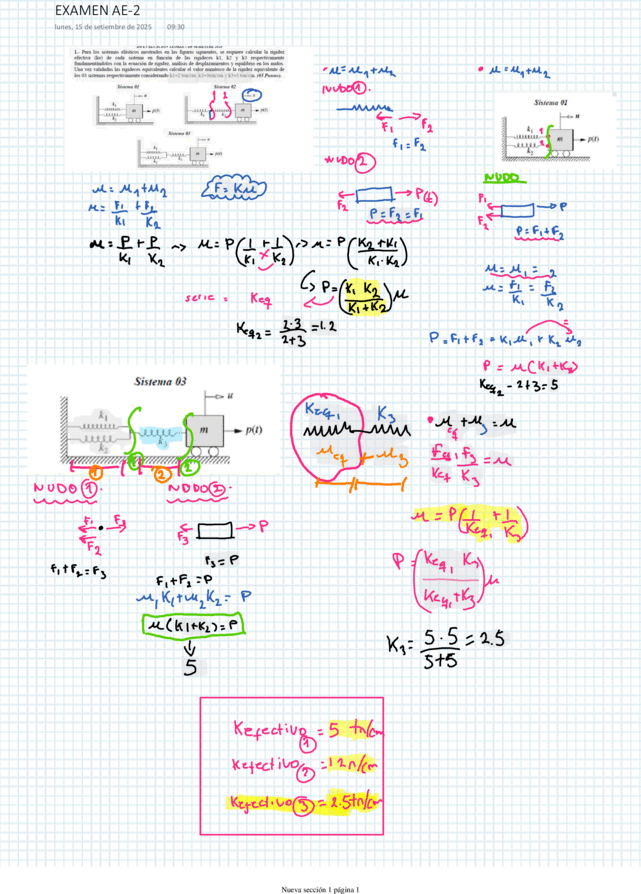 EXAMEN AE-2
lunes, 15 de setiembre de 2025 09:30
1.- Para los sistemas elásticos mostrados en las figuras siguientes, se requiere calcular la rigidez
efectiva (ke) de cada sistema en función de las rigideces k1, k2 y k3 respectivamente
fundamentándolos con la ecuación de rigidez, análisis de desplazamientos y equilibrio en los nudos.
Una vez validadas las rigideces equivalentes calcular el valor numérico de la rigidez equivalente de
los 03 sistemas respectivamente considerando
Sistema 01
Sistema 02
Sistema 03
• u = u1 + u2
NUDO 1.
F1 F2
F1 = F2
NUDO 2
F2 P(t)
P = F2 = F1
• u = u1 + u2
Sistema 01
u
k1
k2
m
p(t)
NUDO
F1
F2
P
P = F1 + F2
u = u1 = 2
u = F1/K1 = F2/K2
P = F1 + F2 = K1 u1 + K2 u2
P = u(K1+K2)
Keq2 - 2+3 = 5
u = u1 + u2
F = Ku
u = F1/K1 + F2/K2
u = P/K1 + P/K2 → u = P(1/K1 + 1/K2) → u = P((K2+K1)/(K1·K2))
P = (K1 K2/(K1+K2)) u
serie = Keq
Keq2 = 2·3/(2+3) = 1.2
Sistema 03
u
k1
k2
k3
m
p(t)
1 1 2 2
NUDO 1.
F1 F3
F2
F1 + F2 = F3
NUDO 2.
F3 P
F3 = P
F1 + F2 = P
u1 K1 + u2 K2 = P
u(K1+K2) = P
5
Keq1 K3
ueq u3
• ueq + u3 = u
Feq1/Keq + F3/K3 = u
u = P(1/Keq1 + 1/K3)
P = (Keq1 K3/(Keq1+K3)) u
K3 = 5·5/(5+5) = 2.5
Kefectivo 1 = 5 tn/cm
Kefectivo 2 = 1 2 n/cm
Kefectivo 3 = 2.5 tn/cm
Nueva sección 1 página 1